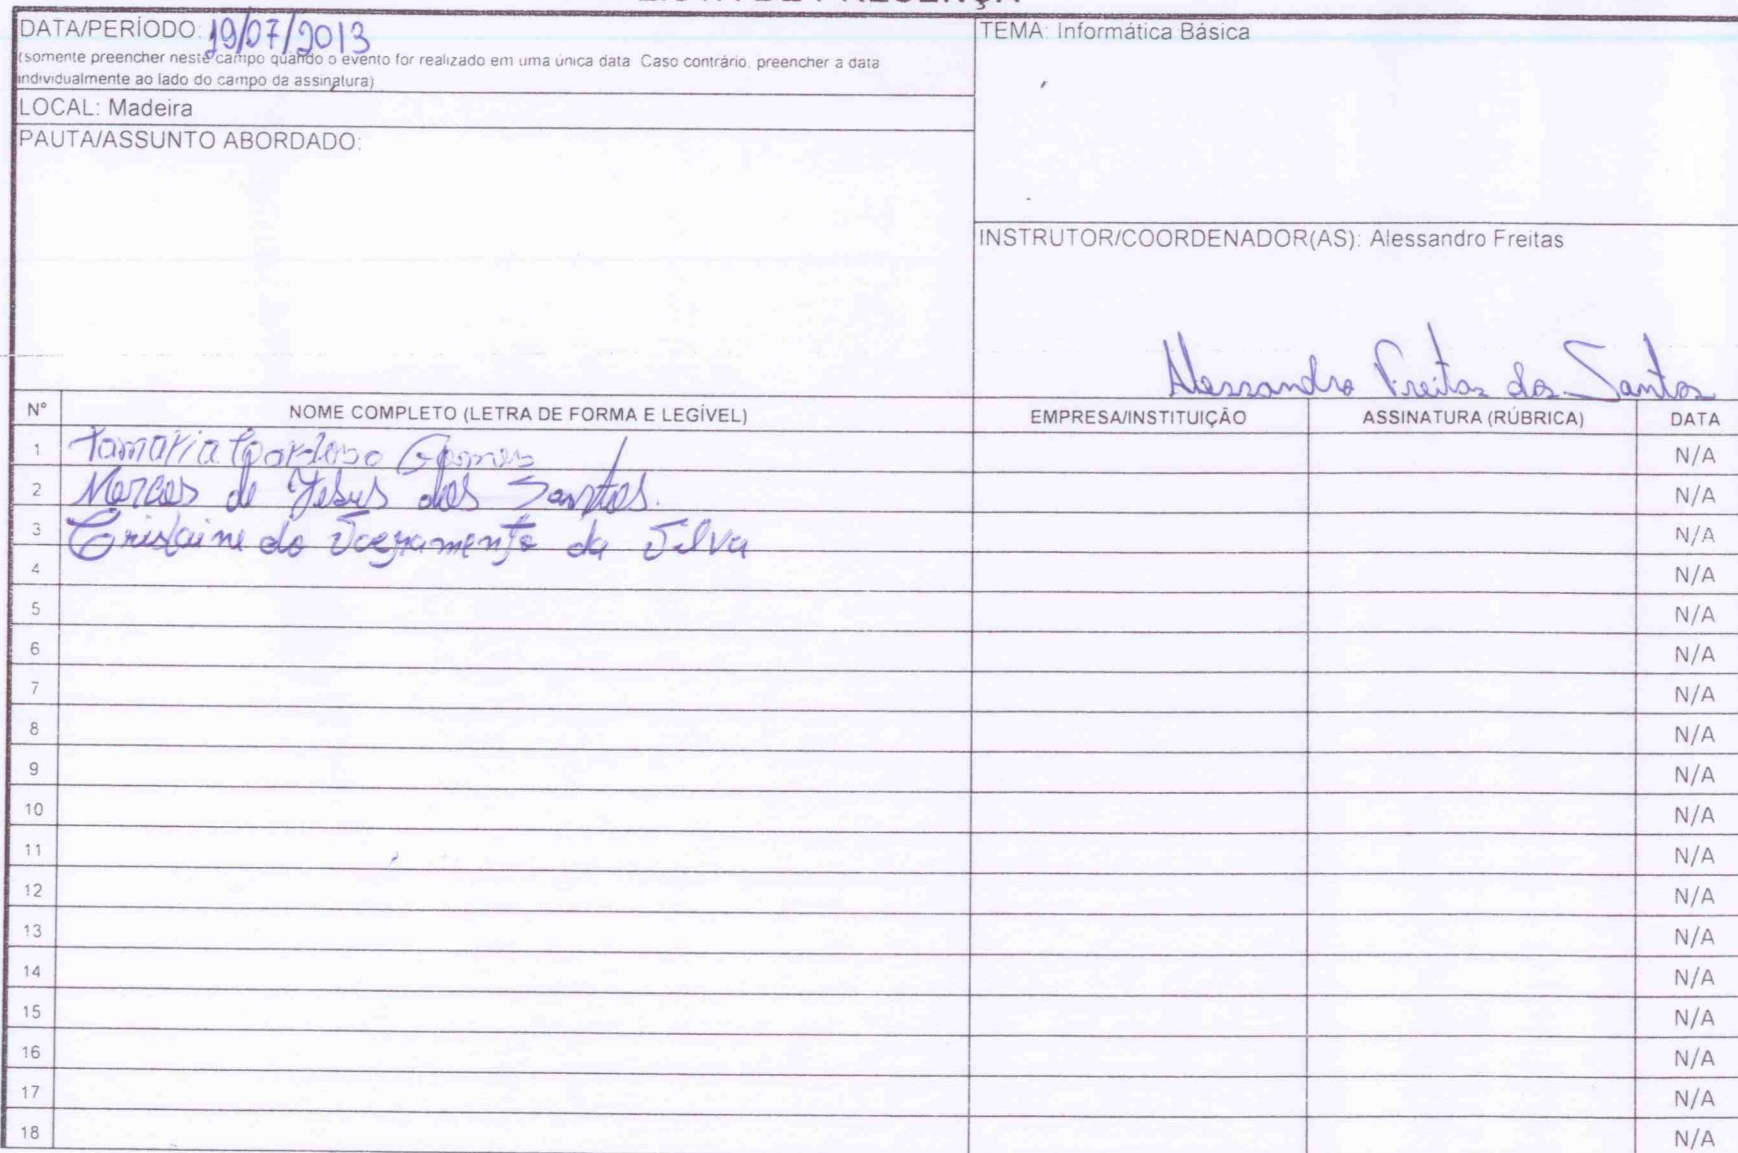 LISTA DE PRESENÇA
DATA/PERÍODO: 19/07/2013
(somente preencher neste campo quando o evento for realizado em uma única data. Caso contrário, preencher a data
individualmente ao lado do campo da assinatura)
LOCAL: Madeira
PAUTA/ASSUNTO ABORDADO:
TEMA: Informática Básica
INSTRUTOR/COORDENADOR(AS): Alessandro Freitas
Alessandro Freitas dos Santos
Nº NOME COMPLETO (LETRA DE FORMA E LEGÍVEL) EMPRESA/INSTITUIÇÃO ASSINATURA (RÚBRICA) DATA
1 Cardoso Gomes N/A
2 Marcos de Jesus dos Santos. N/A
3 do da Silva N/A
4 N/A
5 N/A
6 N/A
7 N/A
8 N/A
9 N/A
10 N/A
11 N/A
12 N/A
13 N/A
14 N/A
15 N/A
16 N/A
17 N/A
18 N/A